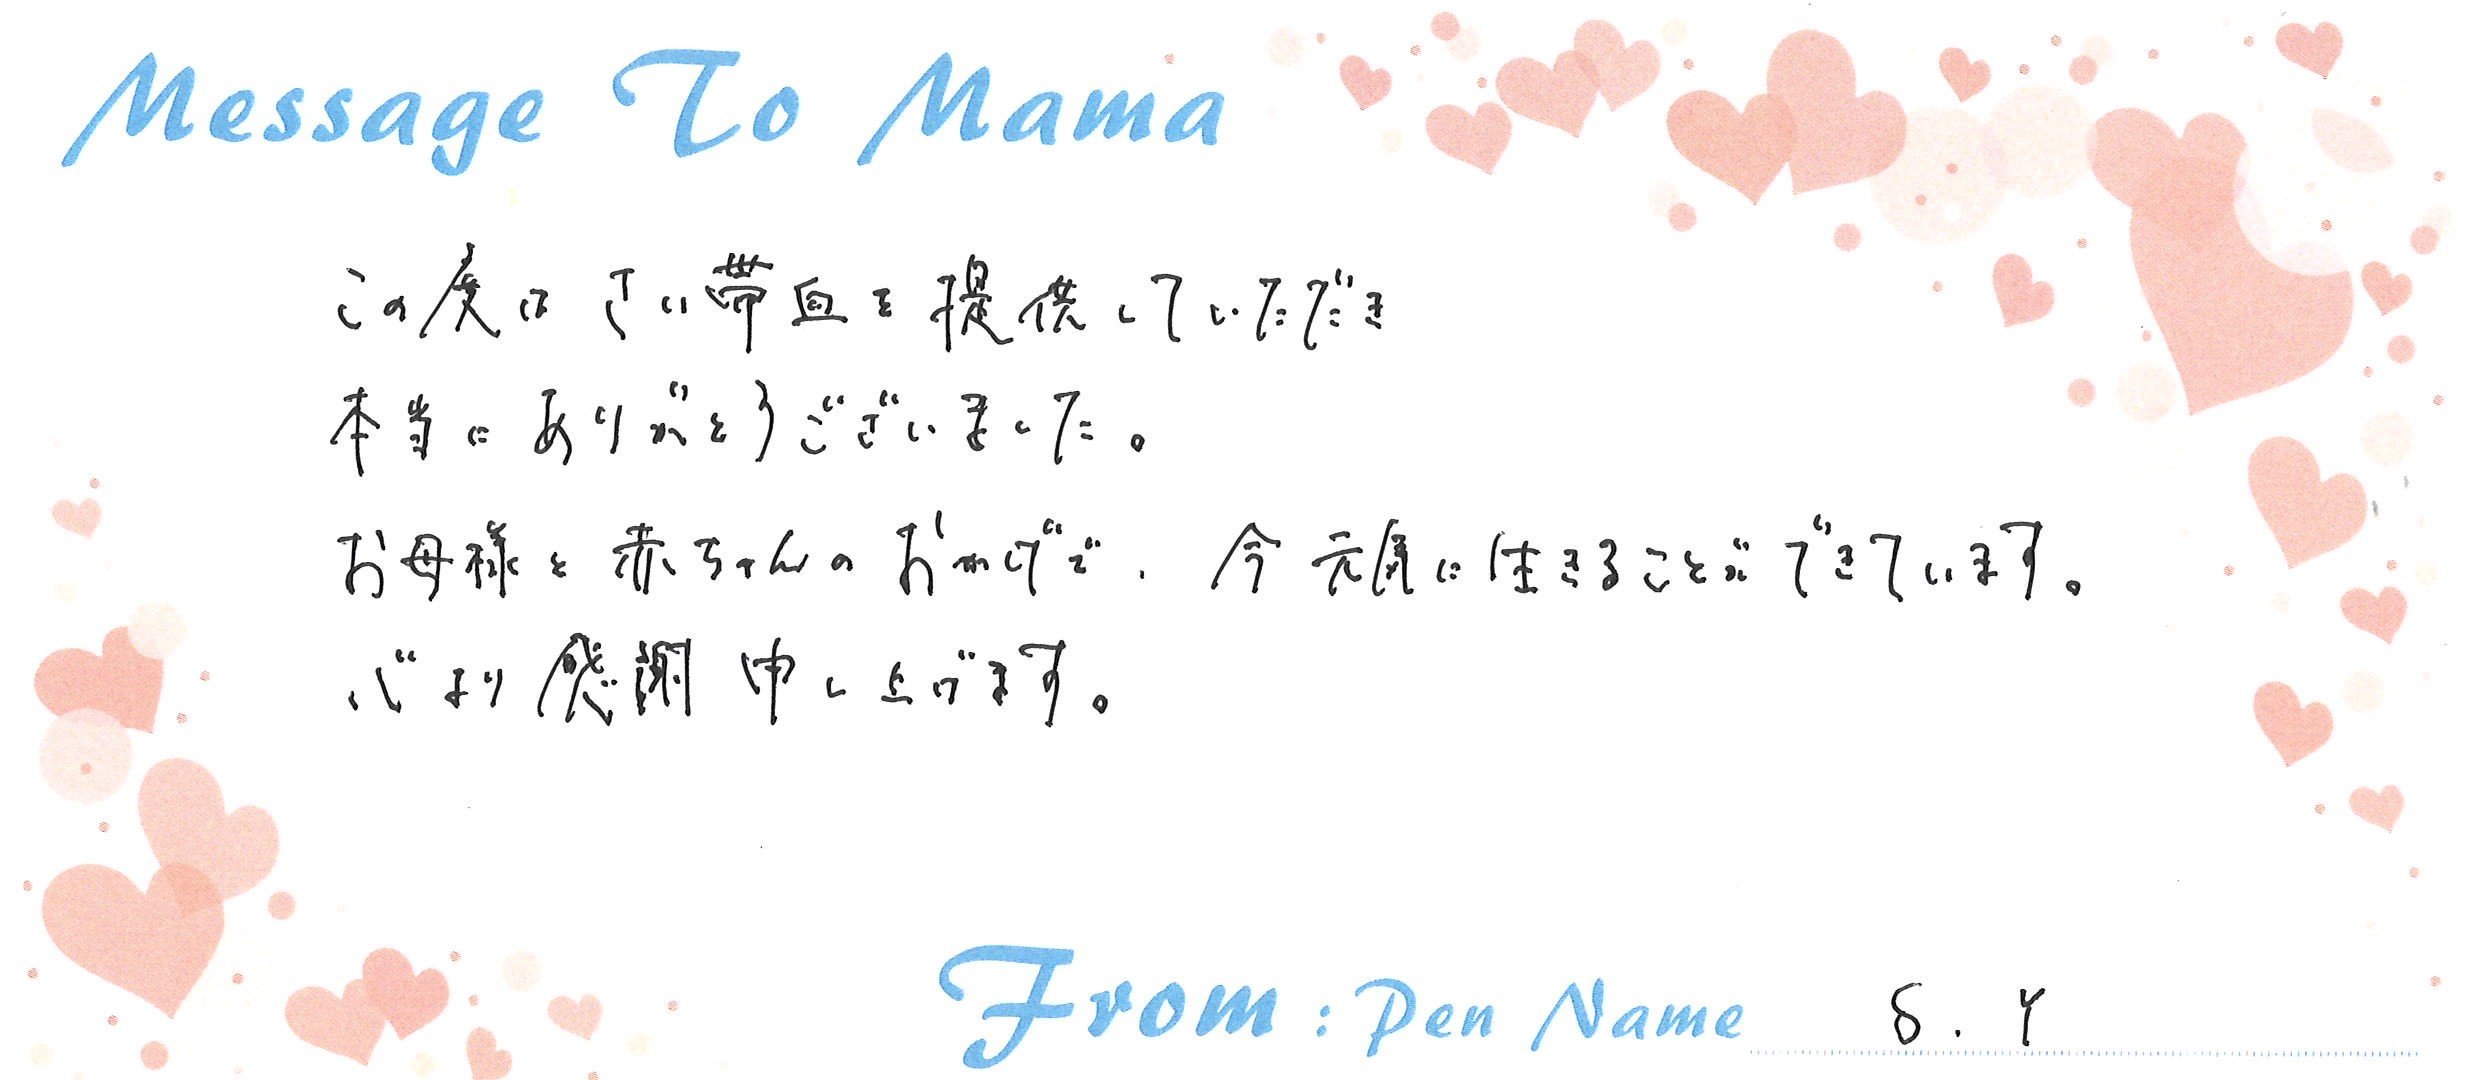 Message To Mama
この度はさい帯血を提供していただき
本当にありがとうございました。
お母様と赤ちゃんのおかげで、今元気に生きることができています。
心より感謝申し上げます。
From : Pen Name S.Y